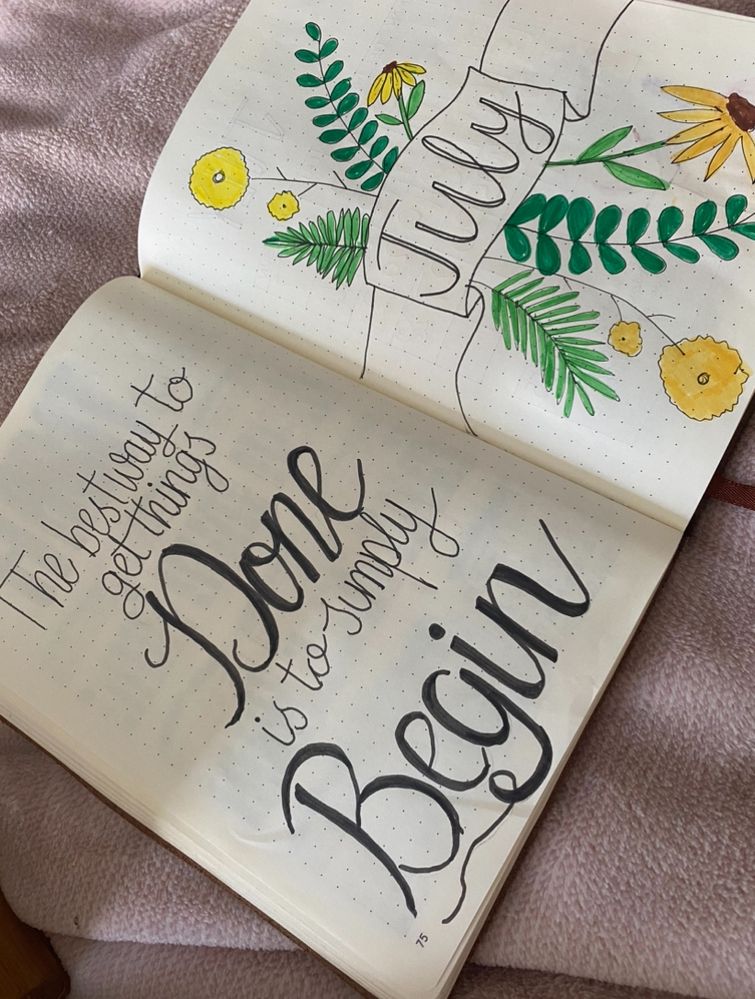 July
The best way to
get things
Done
is to simply
Begin
75